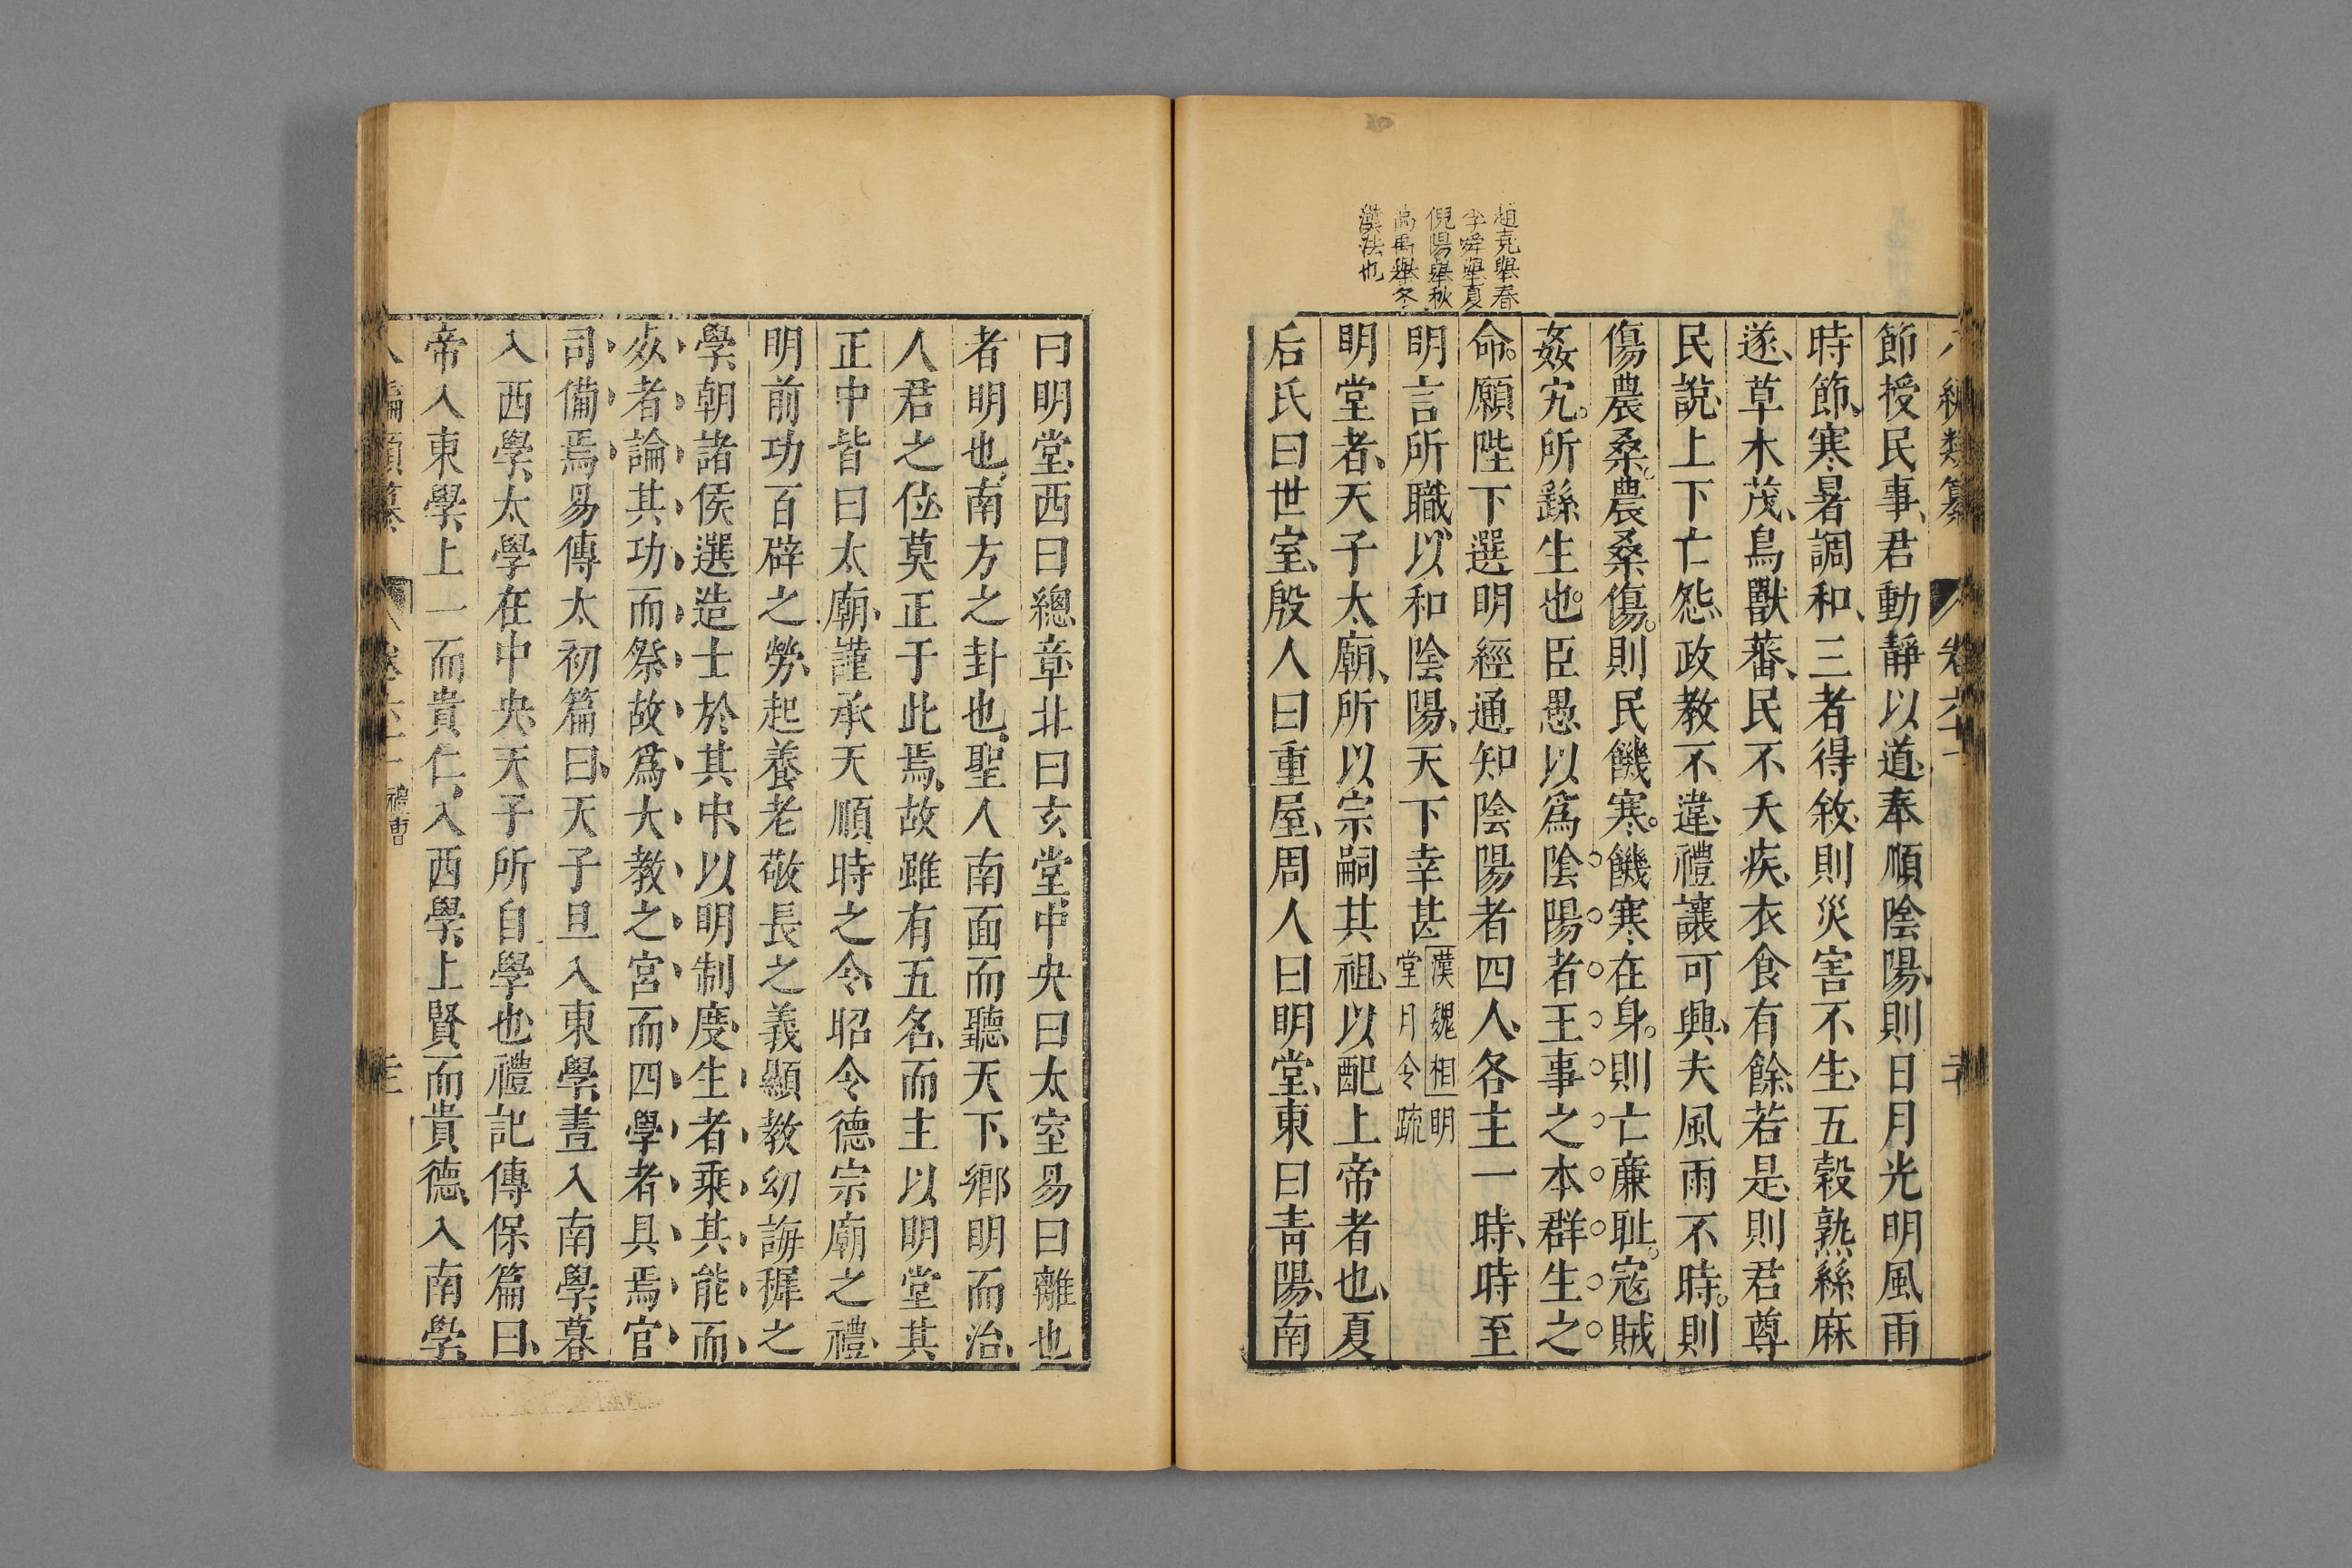 八編類纂 卷六十一
節授民事、君動靜以道、奉順陰陽、則日月光明風雨
時節、寒暑調和、三者得敘、則災害不生、五穀熟絲麻
遂、草木茂、鳥獸蕃、民不夭疾、衣食有餘、若是則君尊
民說、上下亡怨、政教不違、禮讓可興、夫風雨不時。則
傷農桑。農桑傷。則民饑寒。饑寒在身。則亡廉耻。寇賊
姦宄。所繇生也。臣愚以爲陰陽者王事之本群生之
命。願陛下選明經通知陰陽者四人、各主一時、時至
明言所職、以和陰陽、天下幸甚 漢魏相明
堂月令疏
趙堯舉春
李舜舉夏
倪陽舉秋
禹舉冬
漢法也
明堂者、天子太廟、所以宗嗣其祖、以配上帝者也、夏
后氏曰世室、殷人曰重屋、周人曰明堂、東曰青陽、南
曰明堂、西曰總章、北曰玄堂、中央曰太室、易曰離也
者明也、南方之卦也、聖人南面而聽天下、鄉明而治、
人君之位、莫正于此焉、故雖有五名、而主以明堂其
正中皆曰太廟、謹承天順時之令昭令德宗廟之禮、
明前功百辟之勞、起養老敬長之義顯教幼誨穉之
學、朝諸侯選造士於其中、以明制度、生者乘其能而
至死者論其功而祭故爲大教之宮而四學者具焉官
司備焉易傳太初篇曰、天子旦入東學、晝入南學、暮
入西學、太學在中央、天子所自學也、禮記傳保篇曰、
帝入東學、上一而貴仁、入西學、上賢而貴德、入南學、
八編類纂 卷六十一 禮曹